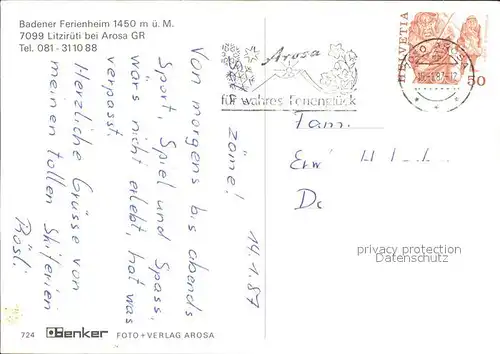 Badener Ferienheim 1450 m ü. M.
7099 Litzirüti bei Arosa GR
Tel. 081 - 31 10 88
Arosa
für wahres Ferienglück
HELVETIA
50
14.1.87
zäme!
Von morgens bis abends
Sport, Spiel und Spass,
wär's nicht erlebt, hat was
verpasst.
Herzliche Grüsse von
meinen tollen Skiferien
Rösli
Fam.
privacy protection
watermark
724 Benker FOTO + VERLAG AROSA